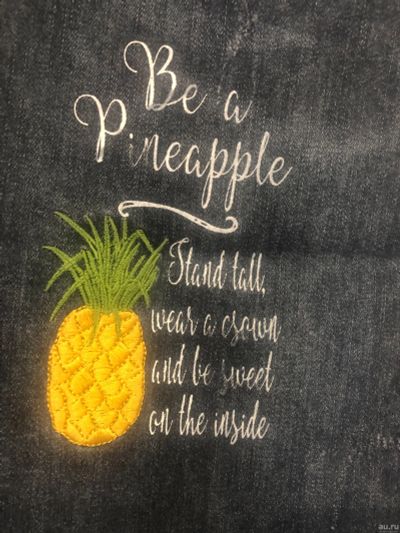 Be a
Pineapple
Stand tall,
wear a crown
and be sweet
on the inside
au.ru